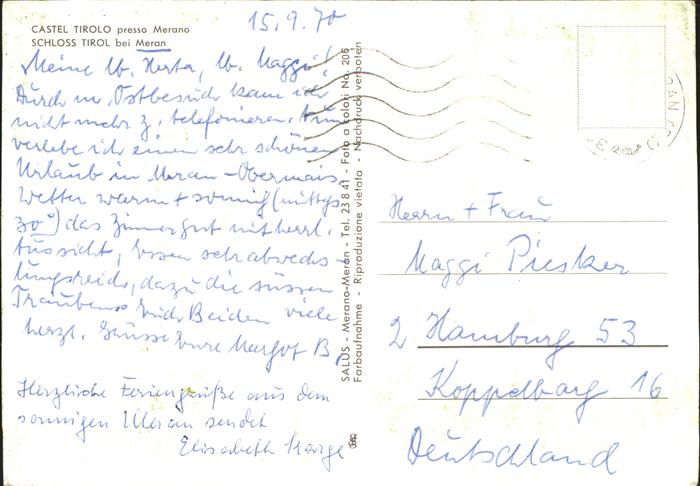 15.9.70
CASTEL TIROLO presso Merano
SCHLOSS TIROL bei Meran
Meine lb. Herta, lb. Maggi!
Durch m. Ostbesuch kam ich
nicht mehr z. telefonieren. Nun
verlebe ich einen sehr schönen
Urlaub in Meran-Obermais
Wetter warm + sonnig (mittgs.
30°) das Zimmer gut mit herrl.
Aussicht, Essen sehr abwechs-
lungsreich, dazu die süssen
Trauben. Euch Beiden viele
herzl. Grüsse Eure Margot B.
Herzliche Feriengrüße aus dem
sonnigen Meran sendet
Elisabeth Karge
SALUS - Merano-Meran - Tel. 23 8 41 - Foto a colori No. 206
Farbaufnahme - Riproduzione vietata - Nachdruck verboten
Herrn + Frau
Maggi Piesker
2 Hamburg 53
Koppelbarg 16
Deutschland